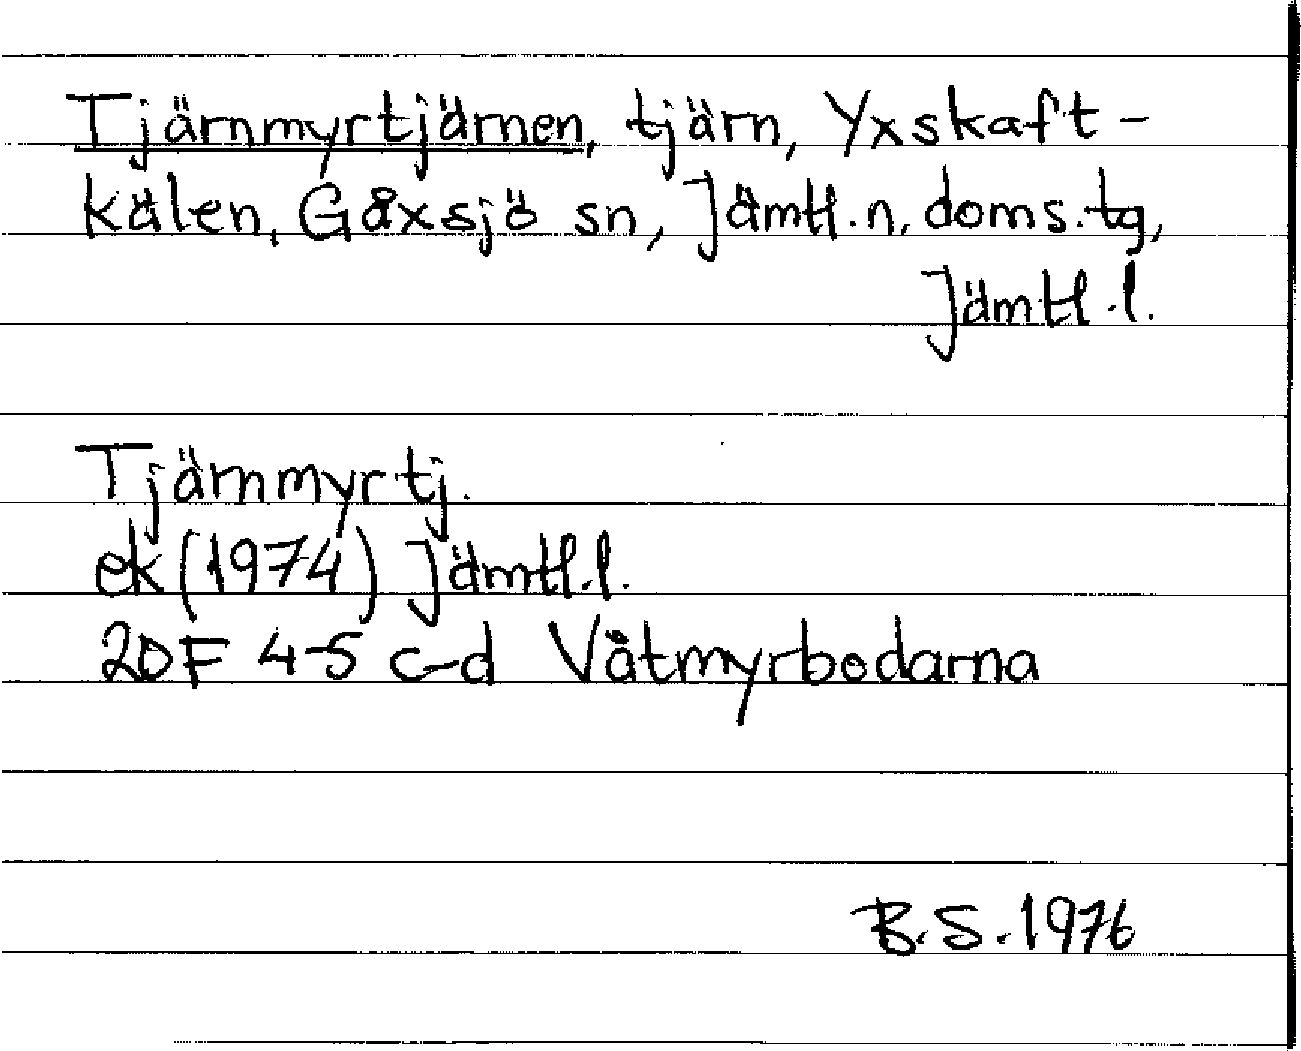 Tjärnmyrtjärnen, tjärn, Yxskaft-
kälen, Gåxsjö sn, Jämtl. n. doms. tg,
Jämtl. l.
Tjärnmyrtj.
ek (1974) Jämtl. l.
20F 4-5 c-d Våtmyrbodarna
B.S. 1976